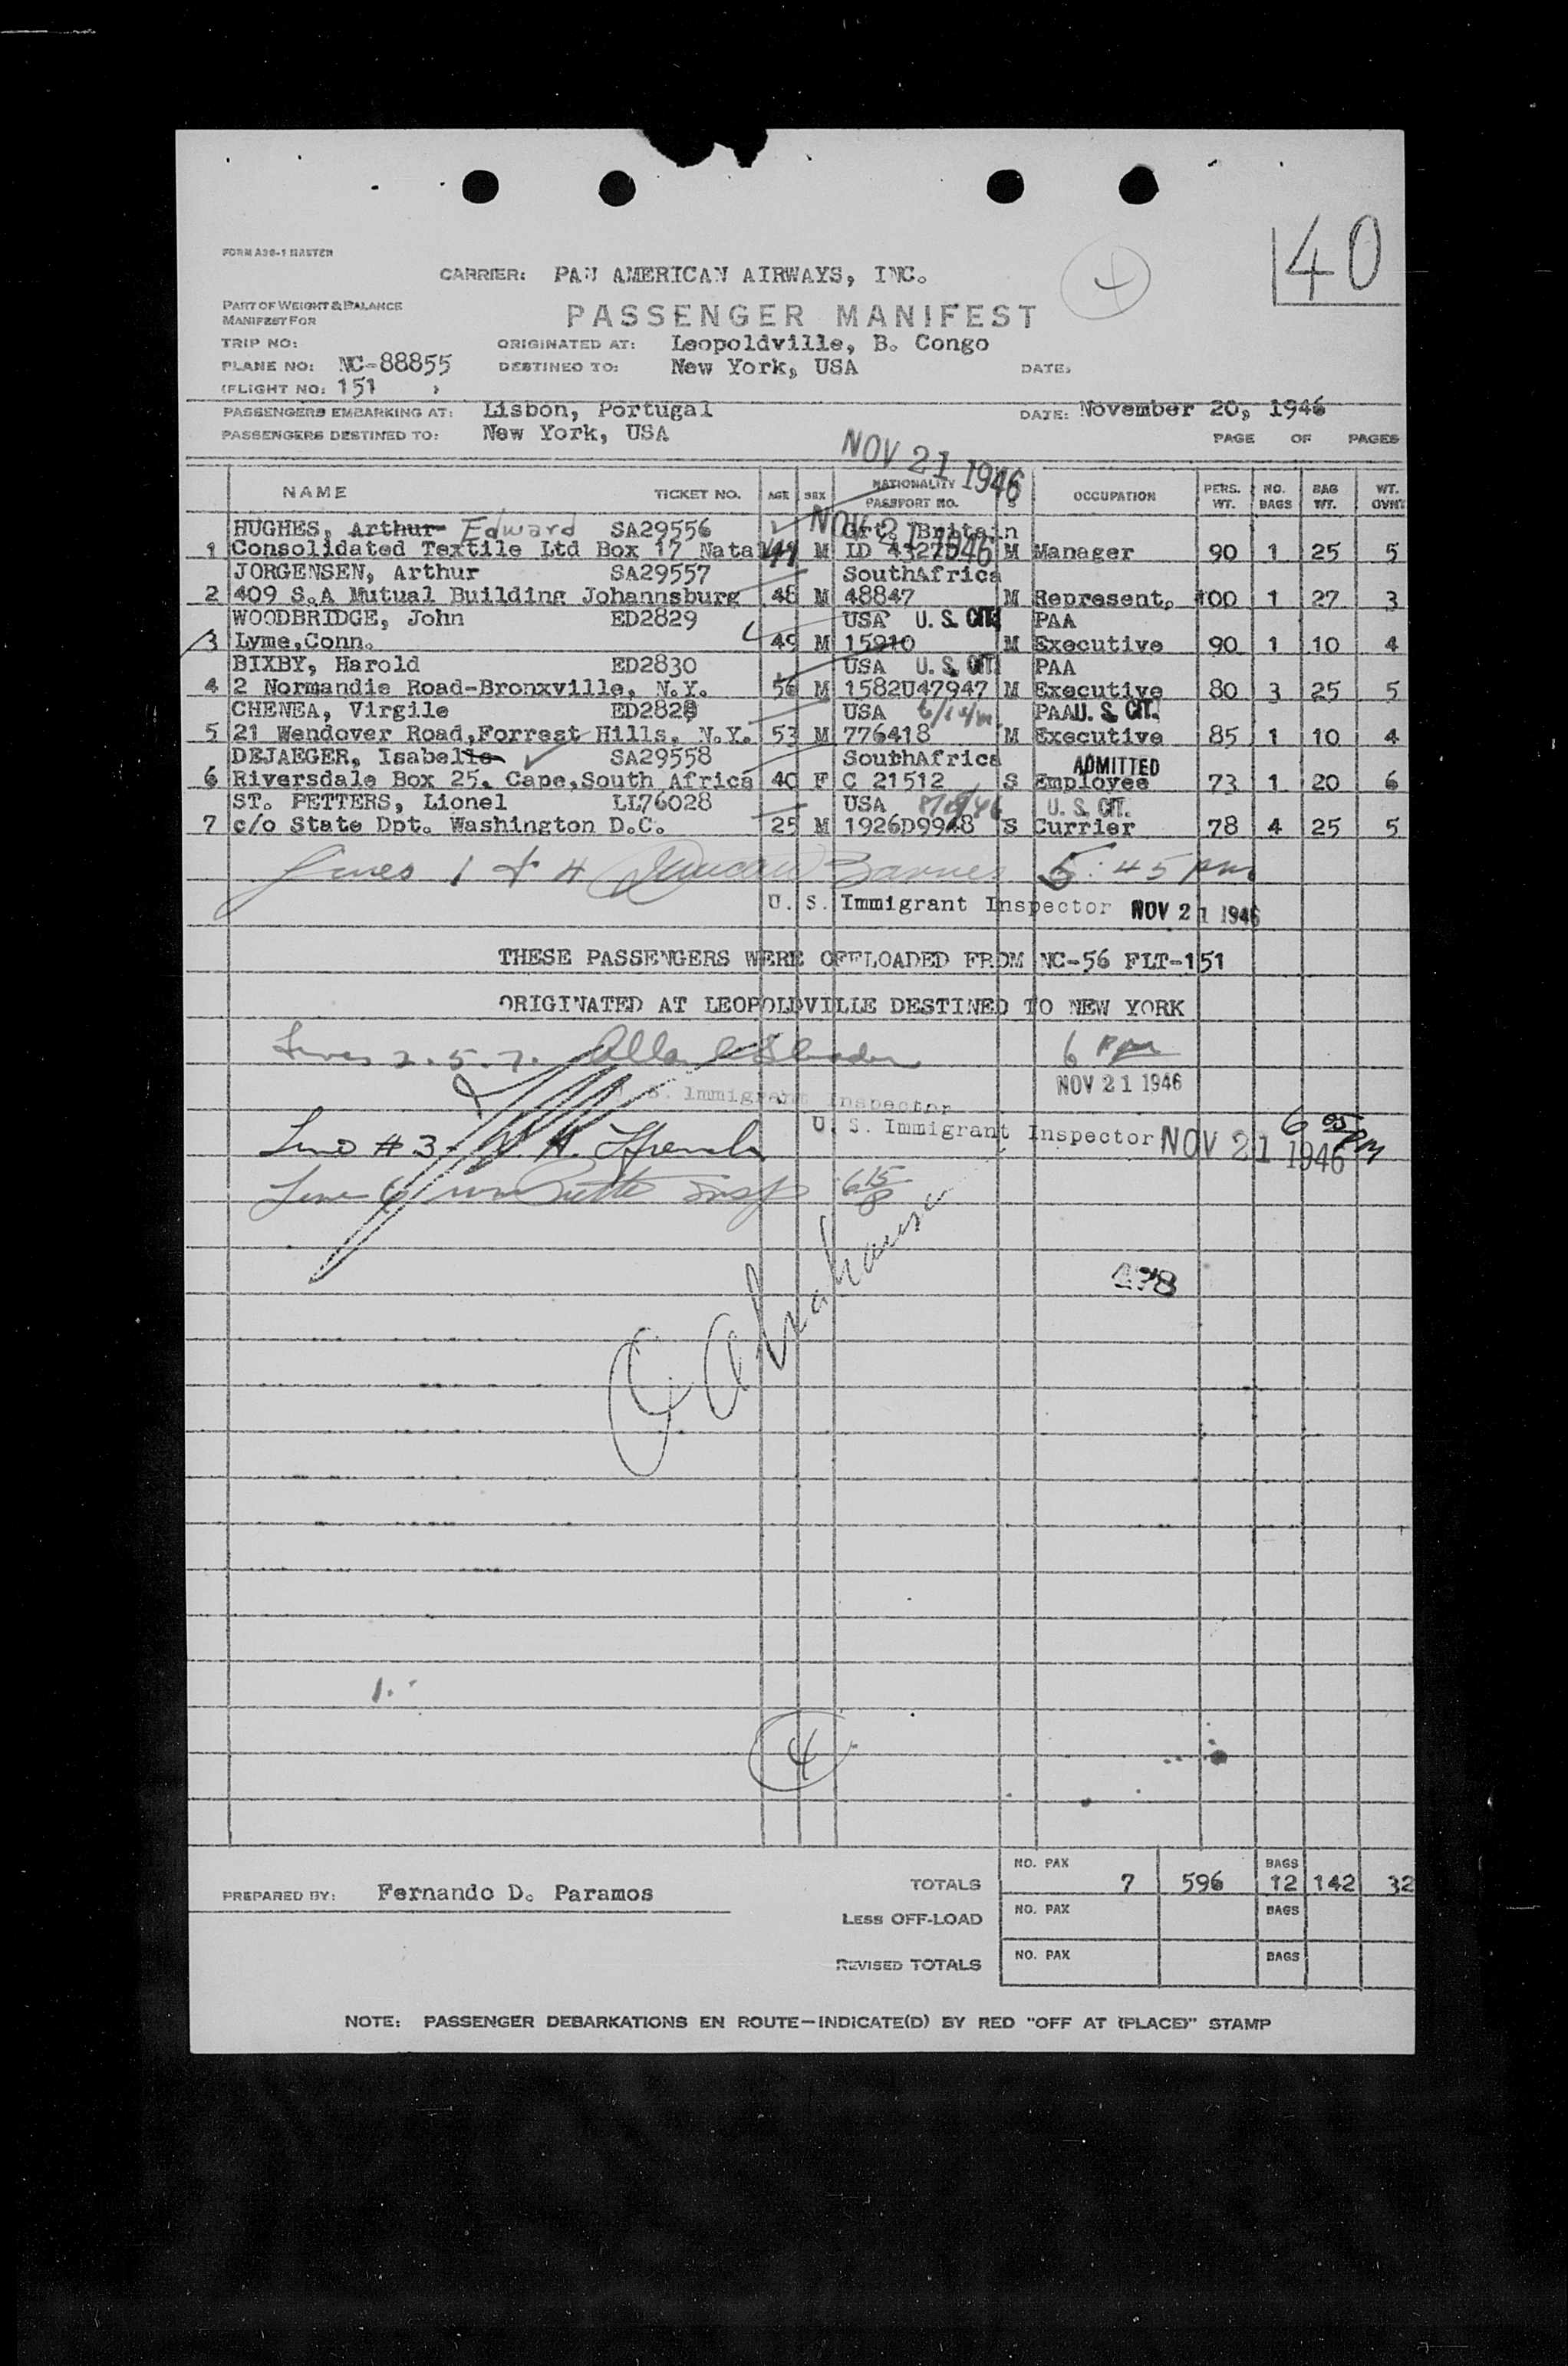 40
FORM A36-1 MASTER
CARRIER: PAN AMERICAN AIRWAYS, INC.
PART OF WEIGHT & BALANCE
MANIFEST FOR
PASSENGER MANIFEST
TRIP NO: ORIGINATED AT: Leopoldville, B. Congo
PLANE NO: NC-88855 DESTINED TO: New York, USA DATE:
(FLIGHT NO: 151 )
PASSENGERS EMBARKING AT: Lisbon, Portugal DATE: November 20, 1946
PASSENGERS DESTINED TO: New York, USA PAGE OF PAGES
NOV 21 1946
NAME TICKET NO. AGE SEX NATIONALITY PASSPORT NO. S OCCUPATION PERS. WT. NO. BAGS BAG WT. WT. OVHT
HUGHES, Arthur Edward SA29556 Grt. Britain
NOV 21 1946
1 Consolidated Textile Ltd Box 17 Natal M ID M Manager 90 1 25 5
JORGENSEN, Arthur SA29557 SouthAfrica
2 409 S.A Mutual Building Johannsburg 48 M 48847 M Represent. 100 1 27 3
WOODBRIDGE, John ED2829 USA U. S. CIT. PAA
3 Lyme,Conn. 49 M 15910 M Executive 90 1 10 4
BIXBY, Harold ED2830 USA U. S. CIT. PAA
4 2 Normandie Road-Bronxville, N.Y. 56 M 1582U47947 M Executive 80 3 25 5
CHENEA, Virgile ED2828 USA PAA U. S. CIT.
5 21 Wendover Road,Forrest Hills, N.Y. 53 M 776418 M Executive 85 1 10 4
DEJAEGER, Isabelle SA29558 SouthAfrica ADMITTED
6 Riversdale Box 25. Cape,South Africa 40 F C 21512 S Employee 73 1 20 6
ST. PETTERS, Lionel LL76028 USA U. S. CIT.
7 c/o State Dpt. Washington D.C. 25 M 1926D9948 S Currier 78 4 25 5
Lines 1 & 4 Duncan Barnes 5:45 pm
U. S. Immigrant Inspector NOV 21 1946
THESE PASSENGERS WERE OFFLOADED FROM NC-56 FLT-151
ORIGINATED AT LEOPOLDVILLE DESTINED TO NEW YORK
Lines 2.5.7. 6 pm
U. S. Immigrant Inspector NOV 21 1946
U. S. Immigrant Inspector NOV 21 1946 6 05 PM
Line #3
Line 6 Insp 6 15
498
4
PREPARED BY: Fernando D. Paramos
TOTALS NO. PAX 7 596 BAGS 12 142 32
LESS OFF-LOAD NO. PAX BAGS
REVISED TOTALS NO. PAX BAGS
NOTE: PASSENGER DEBARKATIONS EN ROUTE—INDICATE(D) BY RED "OFF AT (PLACE)" STAMP